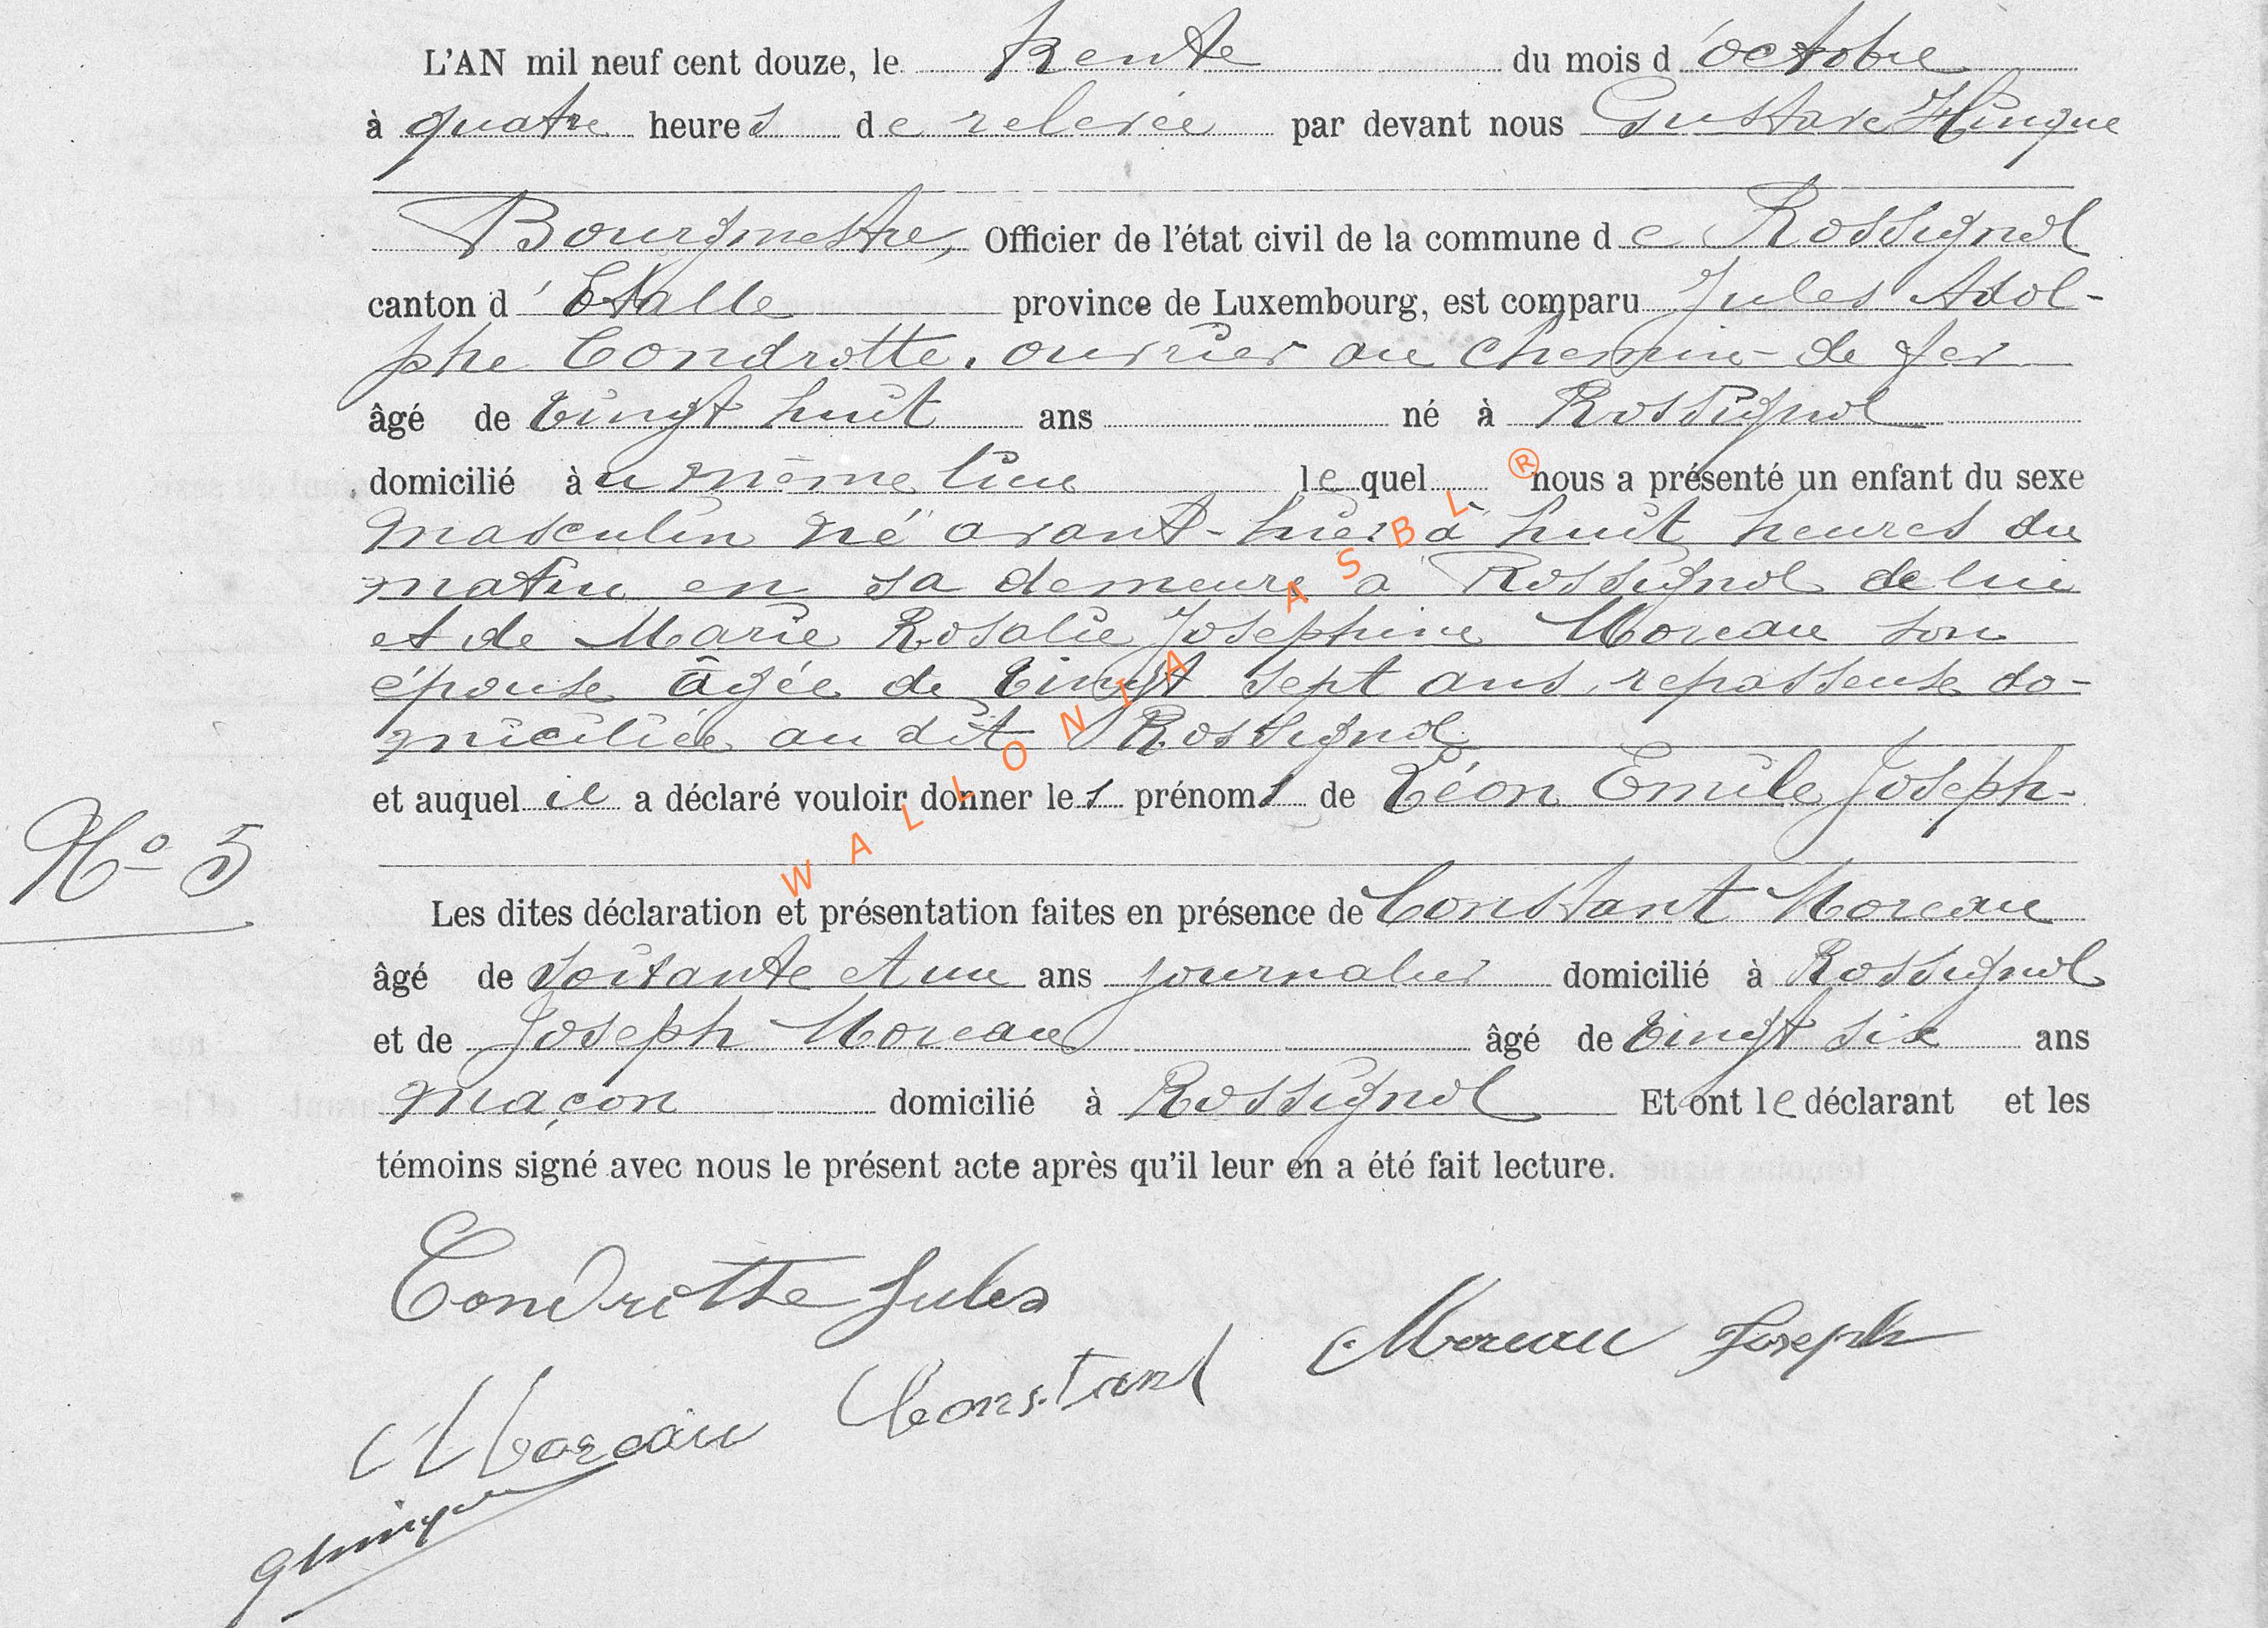 L'AN mil neuf cent douze, le trente du mois d'octobre
à quatre heures de relevée par devant nous Gustave Hinque
Bourgmestre, Officier de l'état civil de la commune de Rossignol
canton d'Etalle province de Luxembourg, est comparu Jules Adol-
phe Condrotte, ouvrier au chemin de fer
âgé de vingt huit ans né à Rossignol
domicilié au même lieu lequel nous a présenté un enfant du sexe
masculin né avant-hier à huit heures du
matin en sa demeure à Rossignol de lui
et de Marie Rosalie Joséphine Moreau son
épouse âgée de vingt sept ans, repasseuse do-
miciliée au dit Rossignol
et auquel il a déclaré vouloir donner les prénoms de Léon Emile Joseph.
N° 5
Les dites déclaration et présentation faites en présence de Constant Moreau
âgé de soixante et un ans journalier domicilié à Rossignol
et de Joseph Moreau âgé de vingt six ans
maçon domicilié à Rossignol Et ont le déclarant et les
témoins signé avec nous le présent acte après qu'il leur en a été fait lecture.
Condrotte Jules
Moreau Joseph
Moreau Constant
WALLONIA ASBL ®